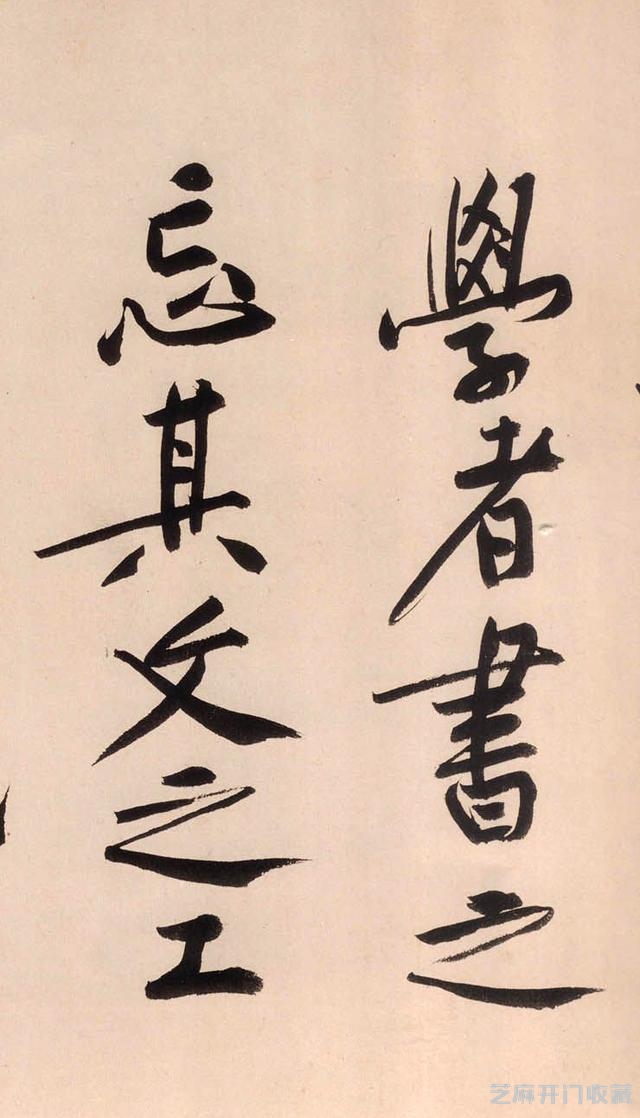 學者書之
忘其文之工
芝麻开门收藏